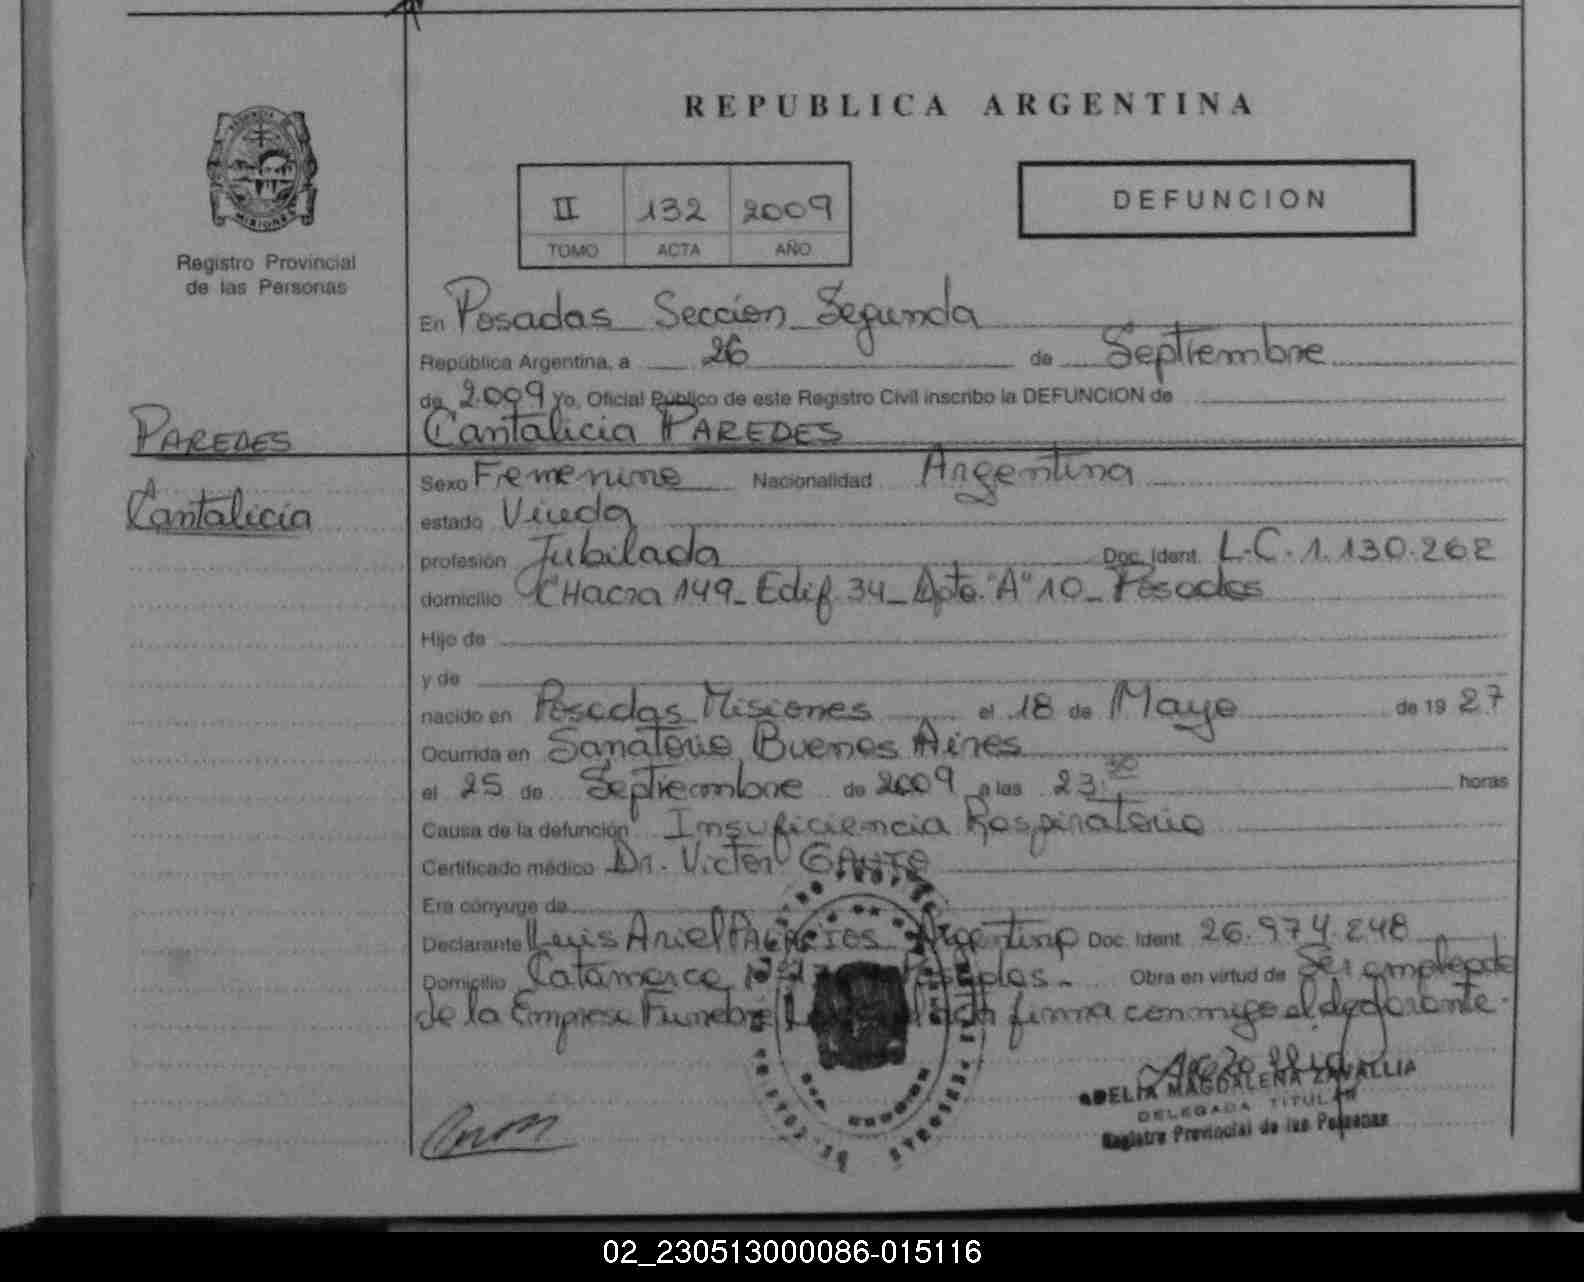 REPUBLICA ARGENTINA
II 132 2009
TOMO ACTA AÑO
DEFUNCION
Registro Provincial
de las Personas
PAREDES
Cantalicia
En Posadas Seccion Segunda
República Argentina, a 26 de Septiembre
de 2.009 Yo, Oficial Público de este Registro Civil inscribo la DEFUNCION de
Cantalicia PAREDES
Sexo Femenino Nacionalidad Argentina
estado Viuda
profesión Jubilada Doc. Ident. L.C. 1.130.262
domicilio CHacra 149_ Edif. 34_ Dpto. "A" 10_ Posadas
Hijo de
y de
nacido en Posadas Misiones el 18 de Mayo de 19 27
Ocurrida en Sanatorio Buenos Aires
el 25 de Septiembre de 2009 a las 23:30 horas
Causa de la defunción Insuficiencia Respiratoria
Certificado médico Dr. Victor
Era cónyuge de
Declarante Luis Ariel PALACIOS Argentino Doc. Ident. 26.974.248
Domicilio Catamarca Posadas. Obra en virtud de Ser empleado
de la Empresa Funebre firma conmigo el declarante.
DELIA MAGDALENA ZAVALLIA
DELEGADA TITULAR
Registro Provincial de las Personas
02_230513000086-015116